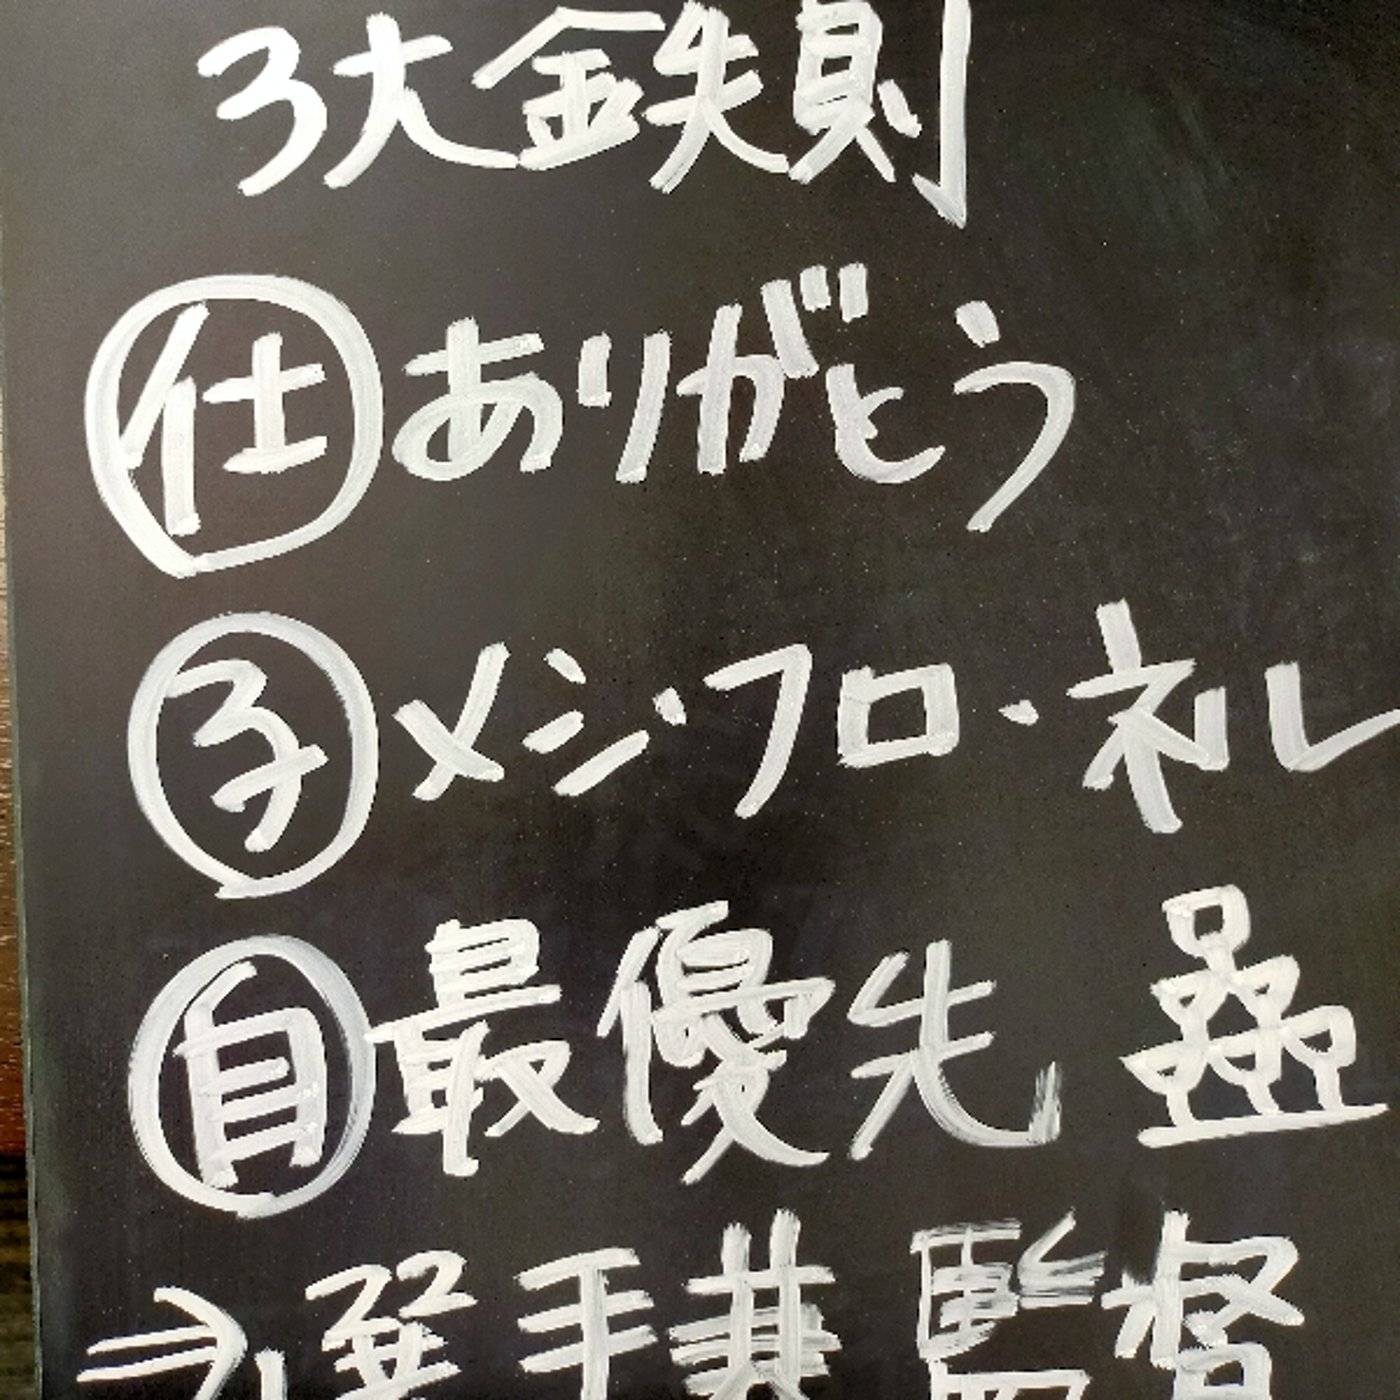 3大鉄則
仕 ありがとう
子 メシ・フロ・ネル
自 最優先
⇒選手兼監督